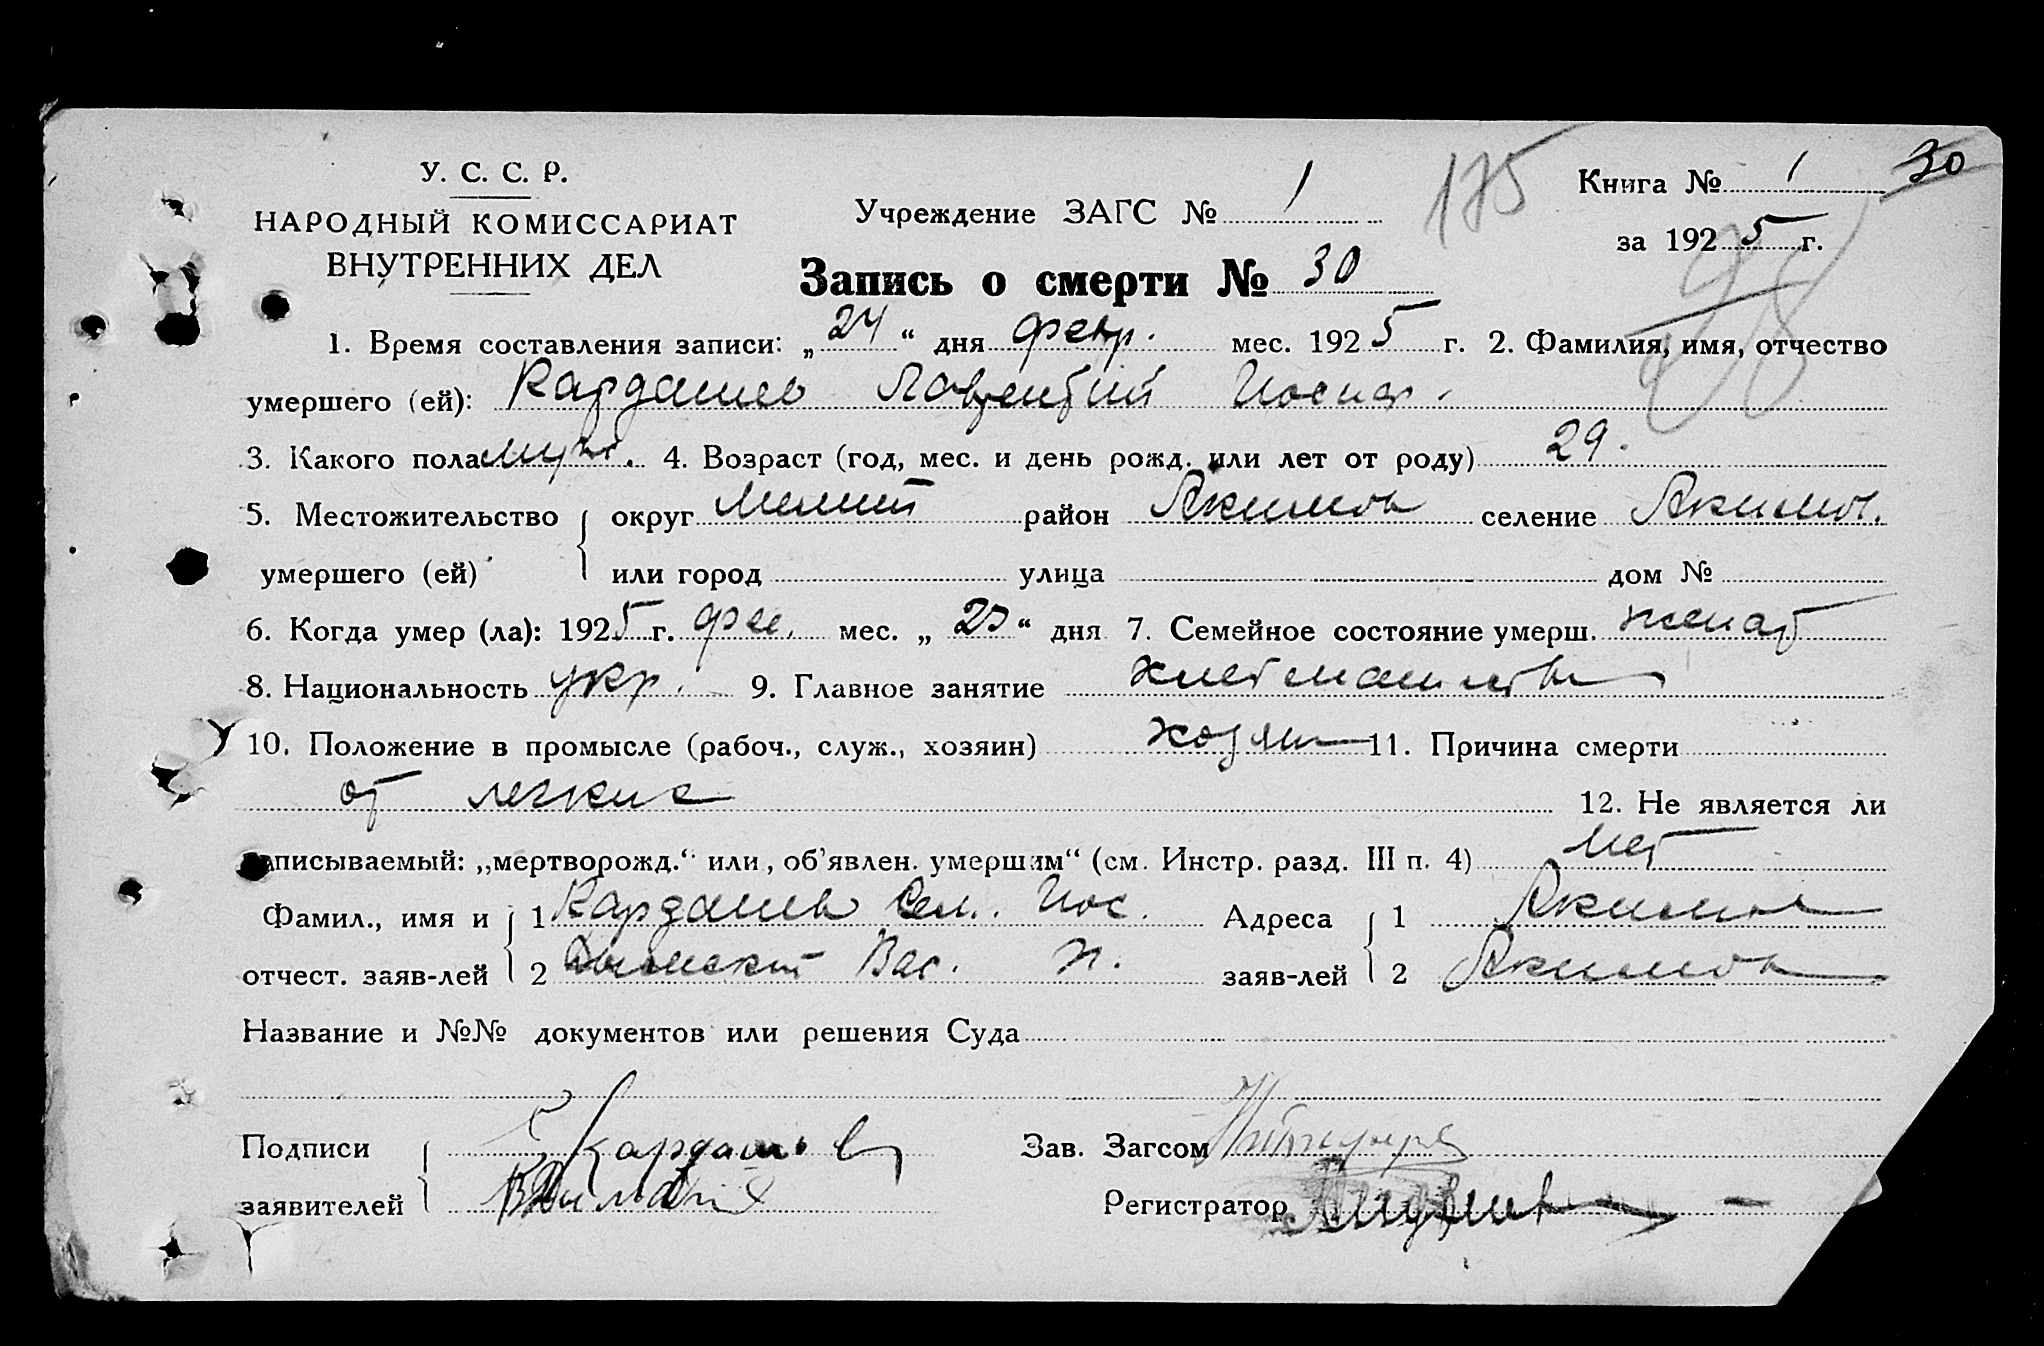 У. С. С. Р.
НАРОДНЫЙ КОМИССАРИАТ
ВНУТРЕННИХ ДЕЛ
Учреждение ЗАГС № 1
175
Книга № 1 30
за 1925 г.
Запись о смерти № 30
1. Время составления записи: „24“ дня февр. мес. 1925 г. 2. Фамилия, имя, отчество
умершего (ей): Кардашев Лаврентий Иосиф.
3. Какого пола муж. 4. Возраст (год, мес. и день рожд. или лет от роду) 29.
5. Местожительство округ Мелит район Акимов селение Акимов.
умершего (ей) или город улица дом №
6. Когда умер (ла): 1925 г. фев. мес. „ “ дня 7. Семейное состояние умерш. женат
8. Национальность укр. 9. Главное занятие хлебопашество
10. Положение в промысле (рабоч., служ., хозяин) хозяин 11. Причина смерти
от легких 12. Не является ли
записываемый: „мертворожд.“ или „об’явлен. умершим“ (см. Инстр. разд. III п. 4) Нет
Фамил., имя и 1 Кардашев Сем. Иос. Адреса 1 Акимов
отчест. заяв-лей 2 Вас. заяв-лей 2 Акимов
Название и №№ документов или решения Суда
Подписи Кардашев Зав. Загсом
заявителей Регистратор